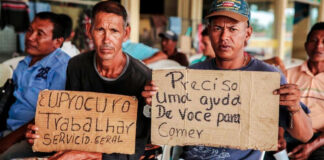 EUPROCURO
Trabalhar
SERVIÇO GERAL
Preciso
Uma ajuda
De Você para
Comer